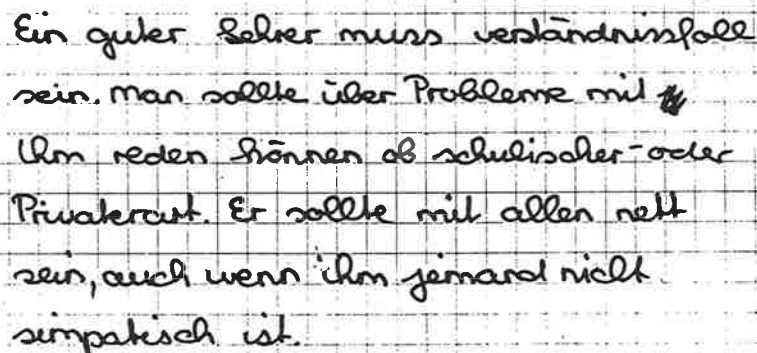 Ein guter Lehrer muss verständnissfoll
sein. Man sollte über Probleme mit
Ihm reden können ob schulischer- oder
Privaterart. Er sollte mit allen nett
sein, auch wenn ihm jemand nicht
simpatisch ist.